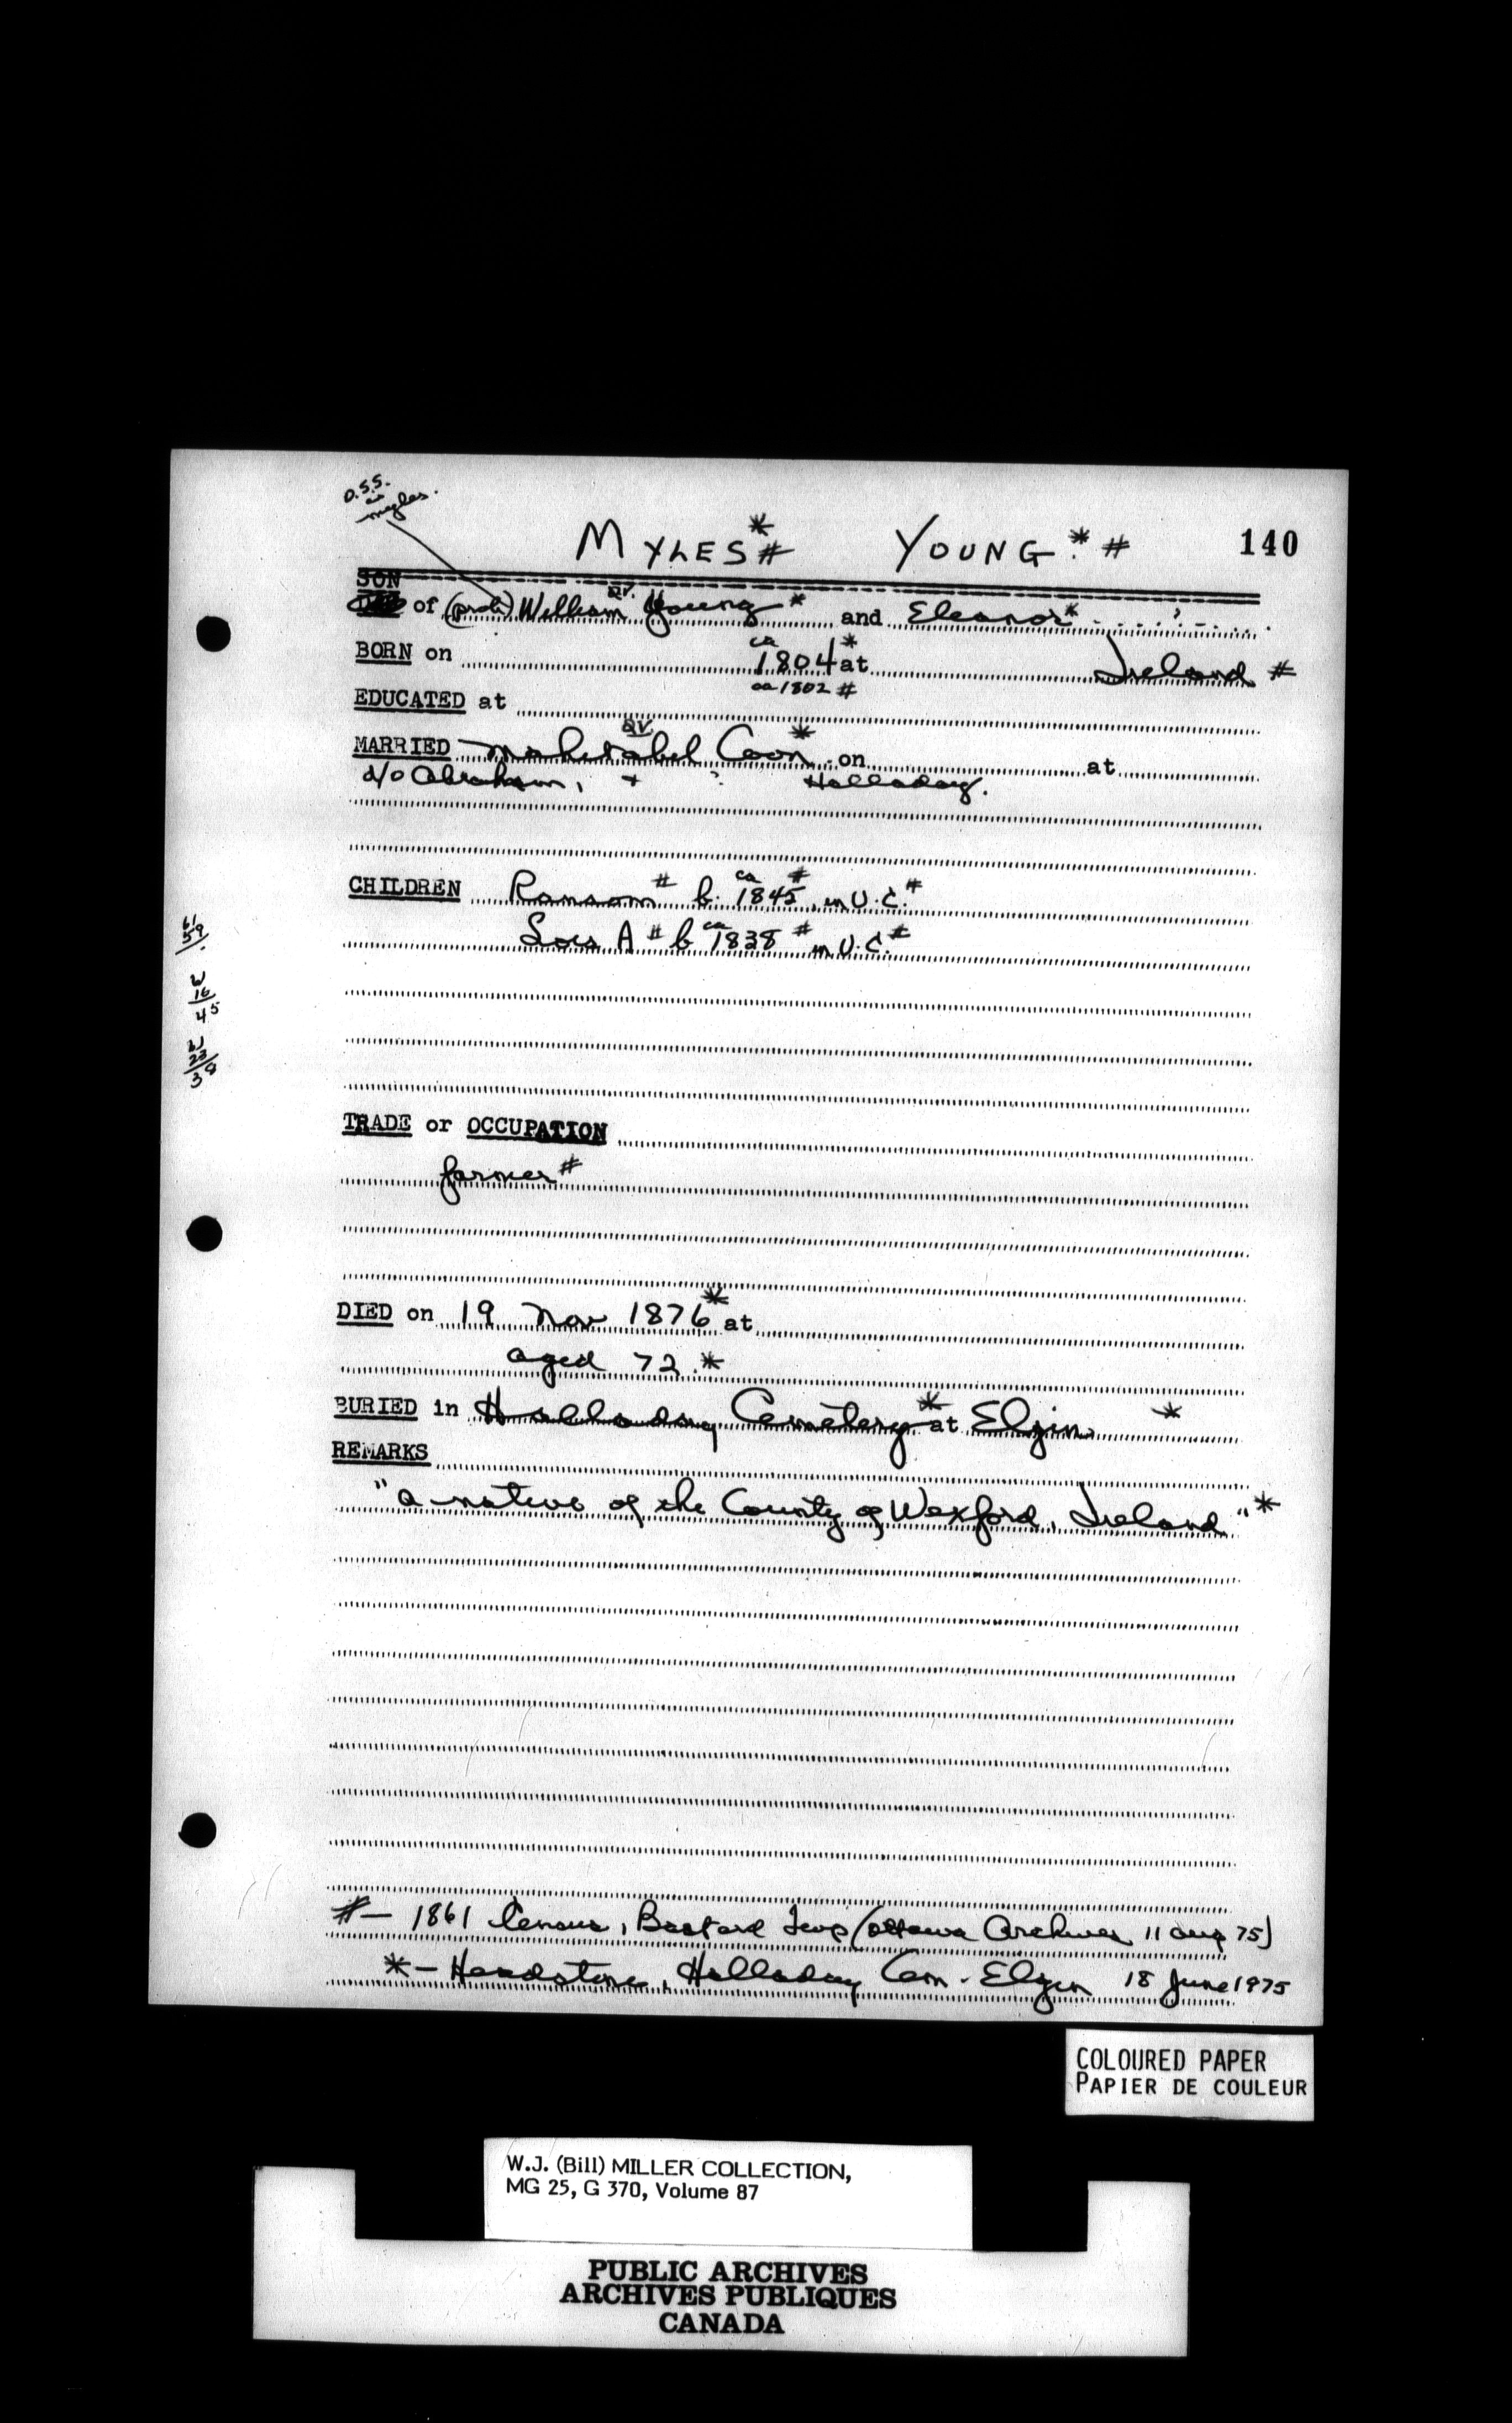 O.S.S.
Myles.
MYLES*# YOUNG*# 140
SON
of (prob) William Q.V. Young* and Eleanor* ?
BORN on ca 1804* at Ireland #
ca 1802 #
EDUCATED at
MARRIED Mahetabel Q.V. Coon* on at
d/o Abraham, + ? Holladay.
CHILDREN Ransom# b. ca 1845#, in U.C.#
Lois A# b ca 1838# in U.C.#
61
59
61
16
45
61
23
38
TRADE or OCCUPATION
farmer#
DIED on 19 Nov 1876* at
aged 72.*
BURIED in Holladay Cemetery* at Elgin *
REMARKS
"a native of the County of Wexford, Ireland"*
#— 1861 Census, Bastard Twp (Ottawa Archives 11 Aug 75)
*— Headstone, Holladay Cem - Elgin 18 June 1975
COLOURED PAPER
PAPIER DE COULEUR
W.J. (Bill) MILLER COLLECTION,
MG 25, G 370, Volume 87
PUBLIC ARCHIVES
ARCHIVES PUBLIQUES
CANADA